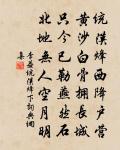 統漢烽西降戶營
黃沙白骨擁長城
只今已勒燕然石
北地無人空月明
李益統漢烽下詞典網
集